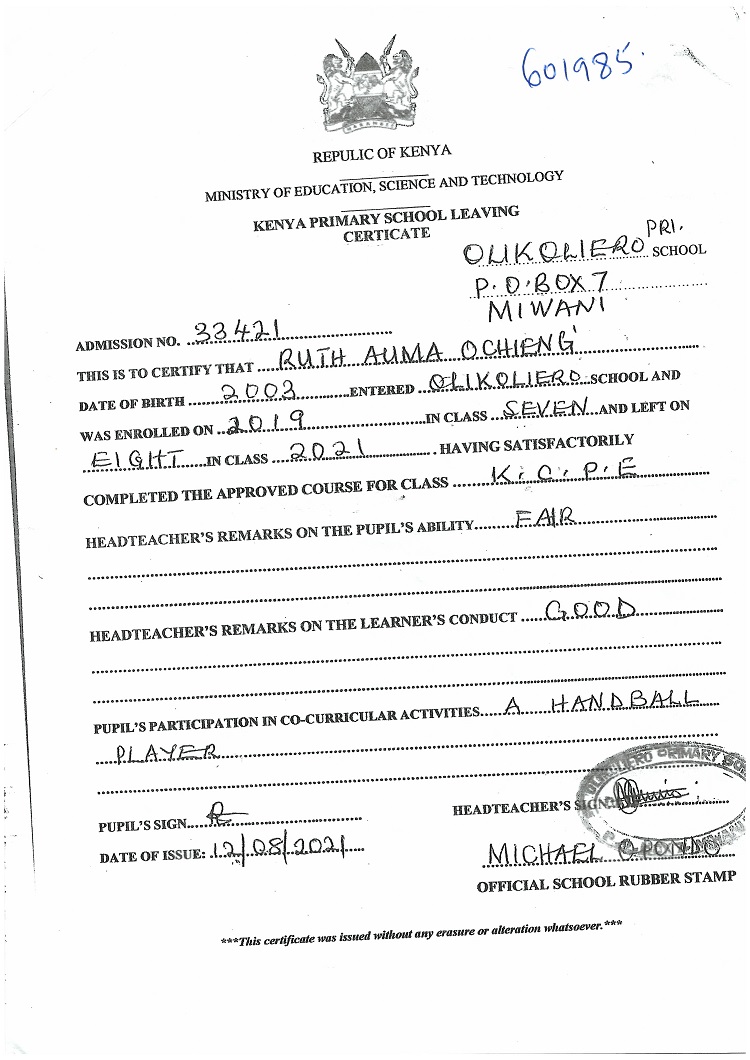 601985.
HARAMBEE
REPULIC OF KENYA
MINISTRY OF EDUCATION, SCIENCE AND TECHNOLOGY
KENYA PRIMARY SCHOOL LEAVING
CERTICATE
OLIKOLIERO PRI. SCHOOL
P.O.BOX 7
MIWANI
ADMISSION NO. 33421
THIS IS TO CERTIFY THAT RUTH AUMA OCHIENG'
DATE OF BIRTH 2003 ENTERED OLIKOLIERO SCHOOL AND
WAS ENROLLED ON 2019 IN CLASS SEVEN AND LEFT ON
EIGHT IN CLASS 2021. HAVING SATISFACTORILY
COMPLETED THE APPROVED COURSE FOR CLASS K.C.P.E
HEADTEACHER'S REMARKS ON THE PUPIL'S ABILITY FAIR
HEADTEACHER'S REMARKS ON THE LEARNER'S CONDUCT GOOD
PUPIL'S PARTICIPATION IN CO-CURRICULAR ACTIVITIES A HANDBALL
PLAYER
OLIKOLIERO PRIMARY
PUPIL'S SIGN HEADTEACHER'S SIGN
DATE OF ISSUE: 12/08/2021 MICHAEL OPONDO
OFFICIAL SCHOOL RUBBER STAMP
***This certificate was issued without any erasure or alteration whatsoever.***